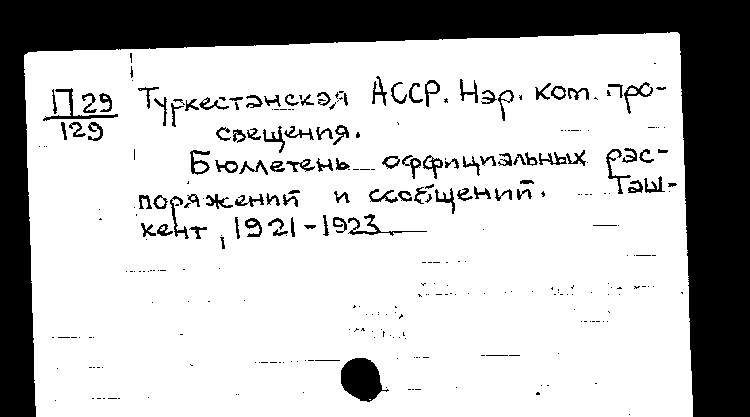 П 29
129
Туркестанская АССР. Нар. ком. про-
свещения.
Бюллетень оффициальных рас-
поряжений и сообщений. Таш-
кент, 1921-1923.